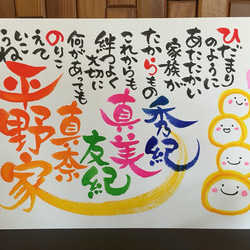 ひだまり
のように
あたたかい
家族が
たからもの
これからも
絆つよく
大切に
何があても
のりこ
えて
いこ
うね
秀紀
真美
友紀
真奈
平野家